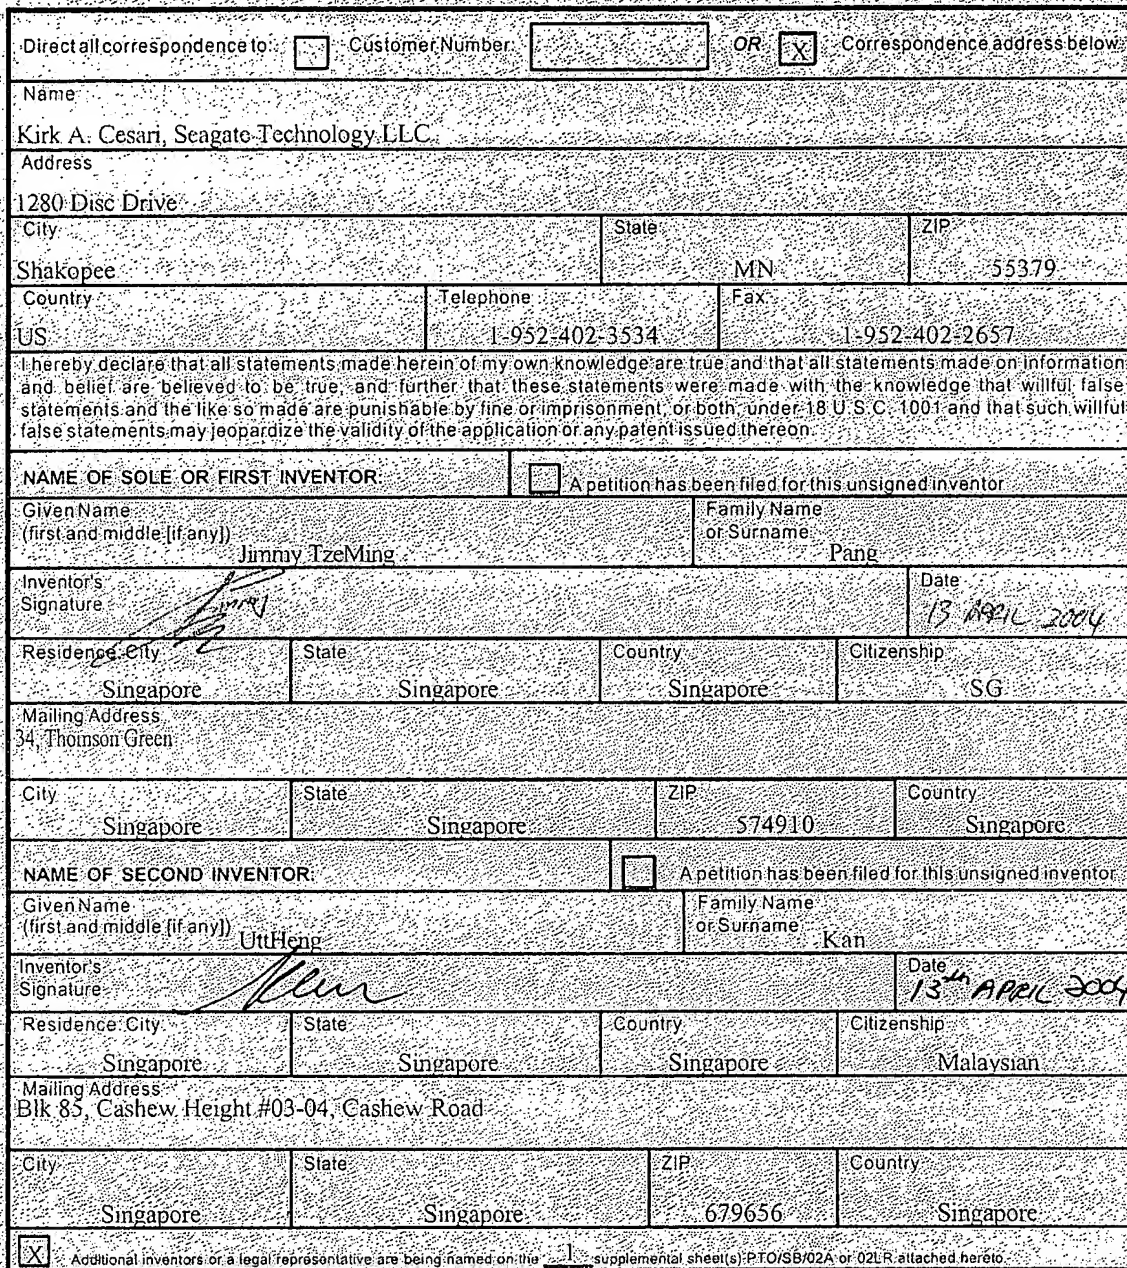 Direct all correspondence to: Customer Number: OR X Correspondence address below
Name
Kirk A. Cesari, Seagate Technology LLC
Address
1280 Disc Drive
City State ZIP
Shakopee MN 55379
Country Telephone Fax
US 1-952-402-3534 1-952-402-2657
I hereby declare that all statements made herein of my own knowledge are true and that all statements made on information
and belief are believed to be true, and further that these statements were made with the knowledge that willful false
statements and the like so made are punishable by fine or imprisonment, or both, under 18 U.S.C. 1001 and that such willful
false statements may jeopardize the validity of the application or any patent issued thereon.
NAME OF SOLE OR FIRST INVENTOR: A petition has been filed for this unsigned inventor
Given Name Family Name
(first and middle [if any]) or Surname
Jimmy TzeMing Pang
Inventor's Date
Signature 13 APRIL 2004
Residence: City State Country Citizenship
Singapore Singapore Singapore SG
Mailing Address
34, Thomson Green
City State ZIP Country
Singapore Singapore 574910 Singapore
NAME OF SECOND INVENTOR: A petition has been filed for this unsigned inventor
Given Name Family Name
(first and middle [if any]) or Surname
UttHeng Kan
Inventor's Date
Signature 13th APRIL 2004
Residence: City State Country Citizenship
Singapore Singapore Singapore Malaysian
Mailing Address
Blk 85, Cashew Height #03-04, Cashew Road
City State ZIP Country
Singapore Singapore 679656 Singapore
X Additional inventors or a legal representative are being named on the 1 supplemental sheet(s) PTO/SB/02A or 02LR attached hereto.